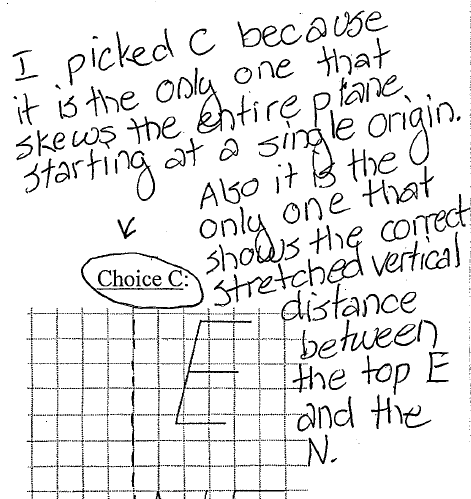 I picked C because
it is the only one that
skews the entire plane
starting at a single origin.
Also it is the
only one that
shows the correct
stretched vertical
distance
between
the top E
and the
N.
Choice C:
E